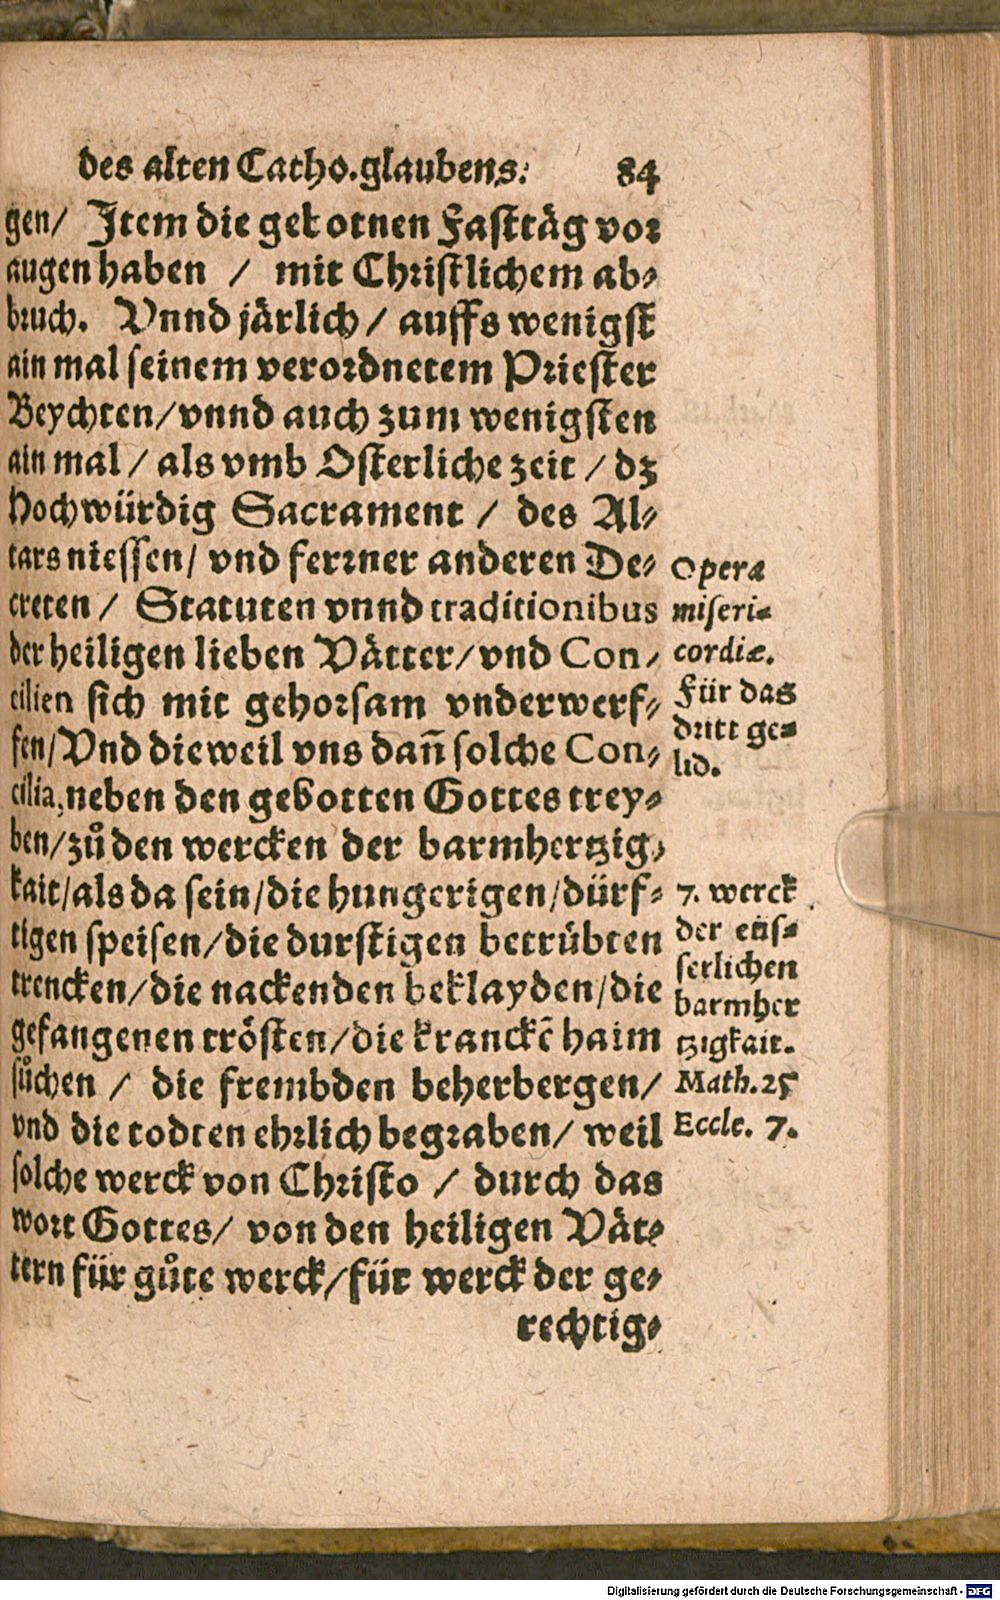 des alten Catho.glaubens. 84
gen/ Jtem die gebotnen Fasttäg vor
augen haben / mit Christlichem ab-
bruch. Vnnd järlich/ auffs wenigst
ain mal seinem verordnetem Priester
Beychten/vnnd auch zum wenigsten
ain mal/ als vmb Osterliche zeit / dz
Hochwürdig Sacrament / des Al-
tars niessen/ vnd ferrner anderen De-
creten / Statuten vnnd traditionibus
der heiligen lieben Vätter/vnd Con-
cilien sich mit gehorsam vnderwerf-
fen/Vnd dieweil vns dañ solche Con-
cilia,neben den gebotten Gottes trey-
ben/zů den wercken der barmhertzig-
kait/als da sein/die hungerigen/dürf-
tigen speisen/die durstigen betrübten
trencken/die nackenden beklayden/die
gefangenen trösten/die kranckẽ haim
sůchen / die frembden beherbergen/
vnd die todten ehrlich begraben/ weil
solche werck von Christo / durch das
wort Gottes/ von den heiligen Vät-
tern für gůte werck/für werck der ge-
rechtig-
Opera
miseri-
cordiæ.
Für das
dritt ge-
lid.
7. werck
der eüs-
serlichen
barmher
tzigkait.
Math.25
Eccle. 7.
Digitalisierung gefördert durch die Deutsche Forschungsgemeinschaft - DFG